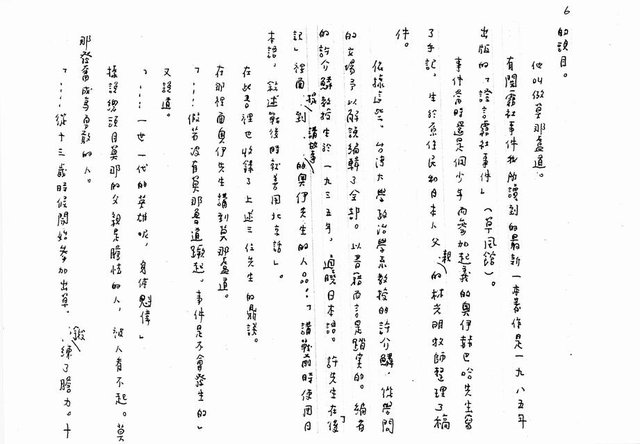 6
的說目。
他叫做莫那魯道。
有關霧社事件我所讀到的最新一本著作是一九八五年
出版的「證言霧社事件」(草風館)。
事件當時還是個少年內參加起義的奧伊幹巴哈先生寫
了手記。生於原住民和日本人父親的林光明牧師整理了稿
件。
依據這些,台灣大學政治學系教授的許介鱗,從學問
的立場予以解說編輯了全部。以書籍而言是踏實的。編者
的許介鱗教授生於一九三五年,通曉日本語。許先生在「後
記」裡面提到講故事的奧伊先生的人品:「講戰前時使用日
本語,敘述戰後時就善用北京話」。
在此書裡也收錄了上述三位先生的鼎談。
在那裡面奧伊先生講到莫那魯道。
「……假若沒有莫那魯道蹶起。事件是不會發生的」
又說道。
「……一世一代的英雄呢,身体魁偉」
據說總頭目莫那的父親是膽怯的人,被人看不起。莫
那發奮成為勇敢的人。
「……從十三歲時候開始參加出草,鍛練了膽力。十